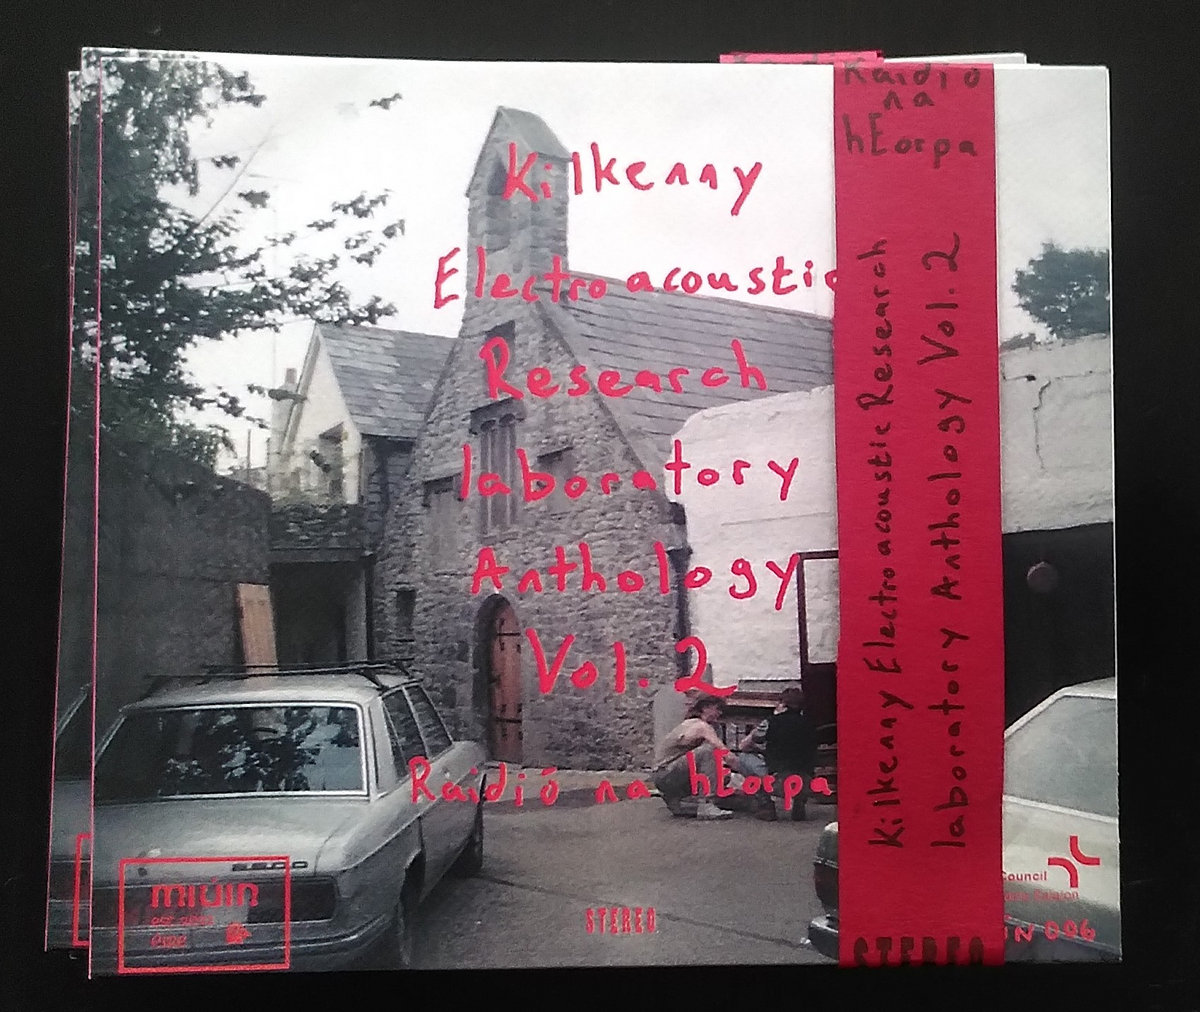 Kilkenny
Electroacoustic
Research
laboratory
Anthology
Vol. 2
Raidió na hEorpa
miúin
STEREO
Raidió
na
hEorpa
Kilkenny Electroacoustic Research
laboratory Anthology Vol. 2
STEREO
Council
IN 006